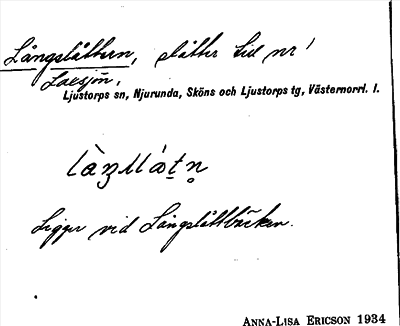 Långslåttern, slåtter till nr 1
Laxsjön.
Ljustorps sn, Njurunda, Sköns och Ljustorps tg, Västernorrl. l.
Ligger vid Långslåttbäcken.
ANNA-LISA ERICSON 1934